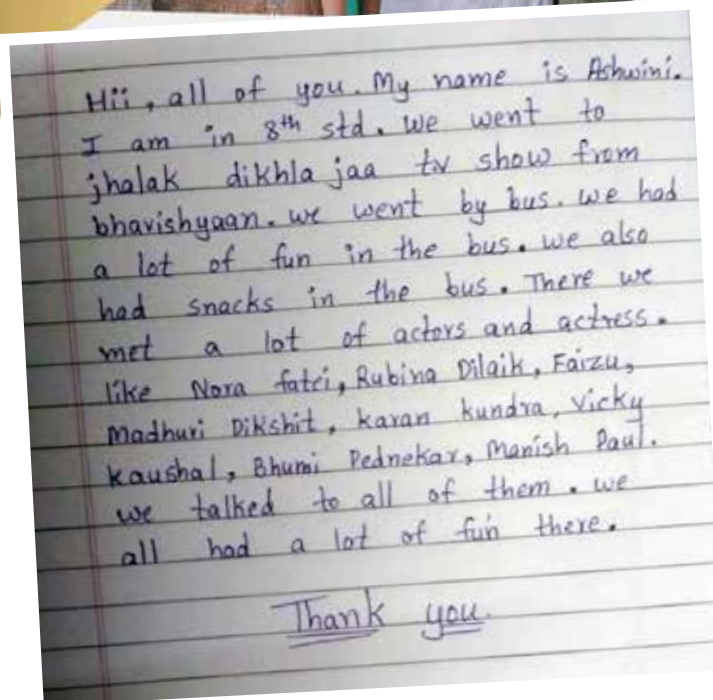 Hii, all of you. My name is Ashwini.
I am in 8th std. we went to
jhalak dikhla jaa tv show from
bhavishyaan. we went by bus. we had
a lot of fun in the bus. we also
had snacks in the bus. There we
met a lot of actors and actress.
like Nora fatei, Rubina Dilaik, Faizu,
Madhuri Dikshit, karan kundra, vicky
kaushal, Bhumi Pednekar, Manish Paul.
we talked to all of them. we
all had a lot of fun there.
Thank you.